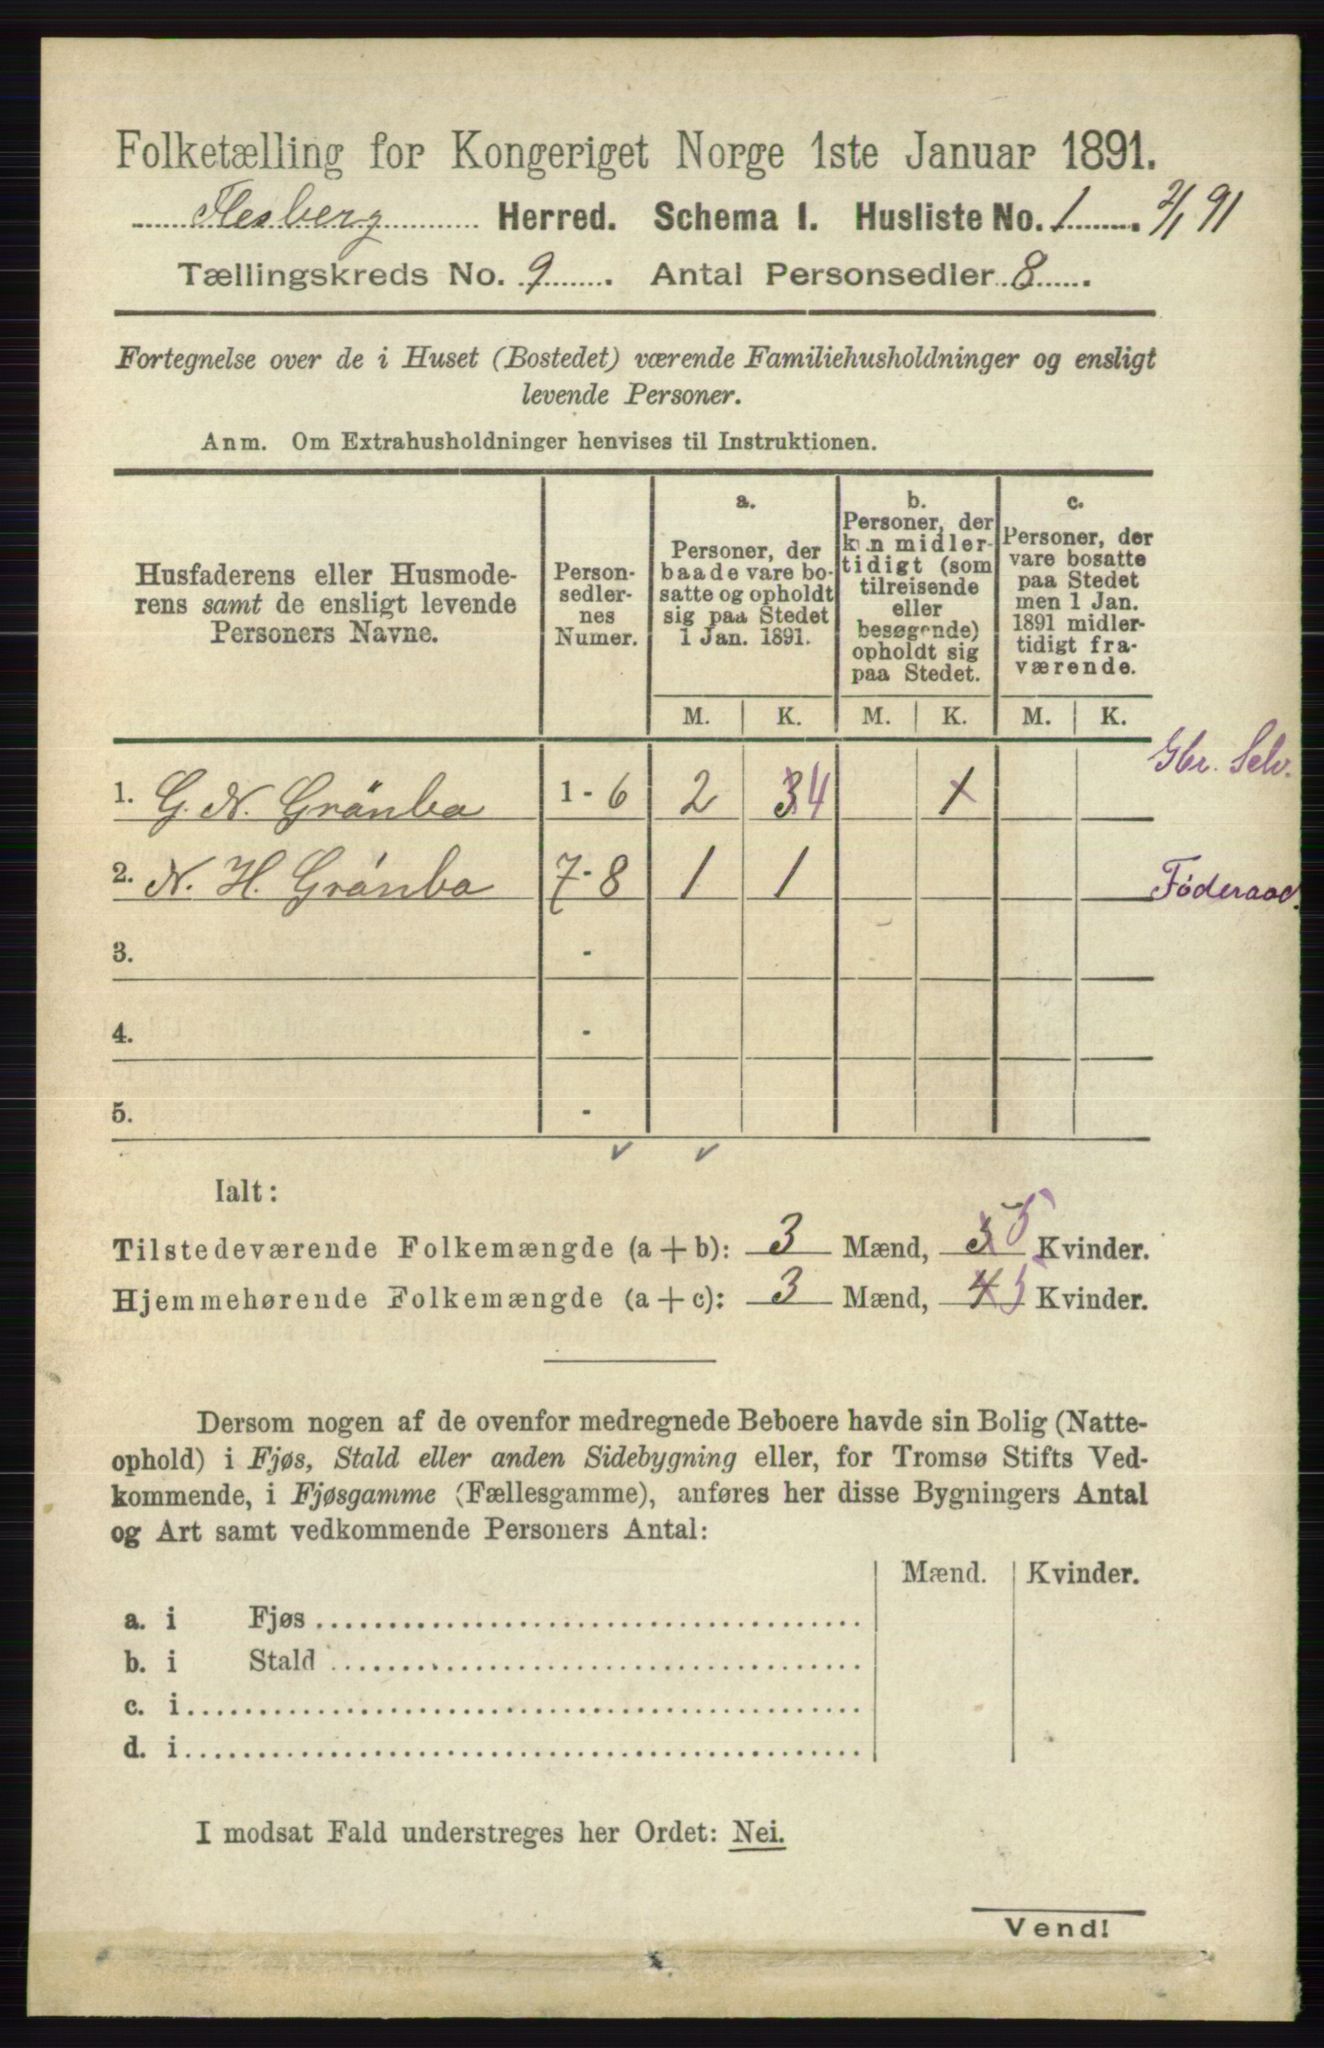 Folketælling for Kongeriget Norge 1ste Januar 1891.
Flesberg Herred. Schema I. Husliste No. 1. 2/1 91
Tællingskreds No. 9. Antal Personsedler 8.
Fortegnelse over de i Huset (Bostedet) værende Familiehusholdninger og ensligt
levende Personer.
Anm. Om Extrahusholdninger henvises til Instruktionen.
Husfaderens eller Husmode-
rens samt de ensligt levende
Personers Navne.
Person-
sedler-
nes
Numer.
a.
Personer, der
baade vare bo-
satte og opholdt
sig paa Stedet
1 Jan. 1891.
b.
Personer, der
kun midler-
tidigt (som
tilreisende
eller
besøgende)
opholdt sig
paa Stedet.
c.
Personer, der
vare bosatte
paa Stedet
men 1 Jan.
1891 midler-
tidigt fra-
værende.
M. K. M. K. M. K.
1. G. N. Grönba 1 - 6 2 3 4 1 Gbr. Selv.
2. N. H. Grönba 7 - 8 1 1 Føderaad.
3. -
4. -
5. -
Ialt:
Tilstedeværende Folkemængde (a + b): 3 Mænd, 3 5 Kvinder.
Hjemmehørende Folkemængde (a + c): 3 Mænd, 4 5 Kvinder.
Dersom nogen af de ovenfor medregnede Beboere havde sin Bolig (Natte-
ophold) i Fjøs, Stald eller anden Sidebygning eller, for Tromsø Stifts Ved-
kommende, i Fjøsgamme (Fællesgamme), anføres her disse Bygningers Antal
og Art samt vedkommende Personers Antal:
Mænd. Kvinder.
a. i Fjøs
b. i Stald
c. i
d. i
I modsat Fald understreges her Ordet: Nei.
Vend!